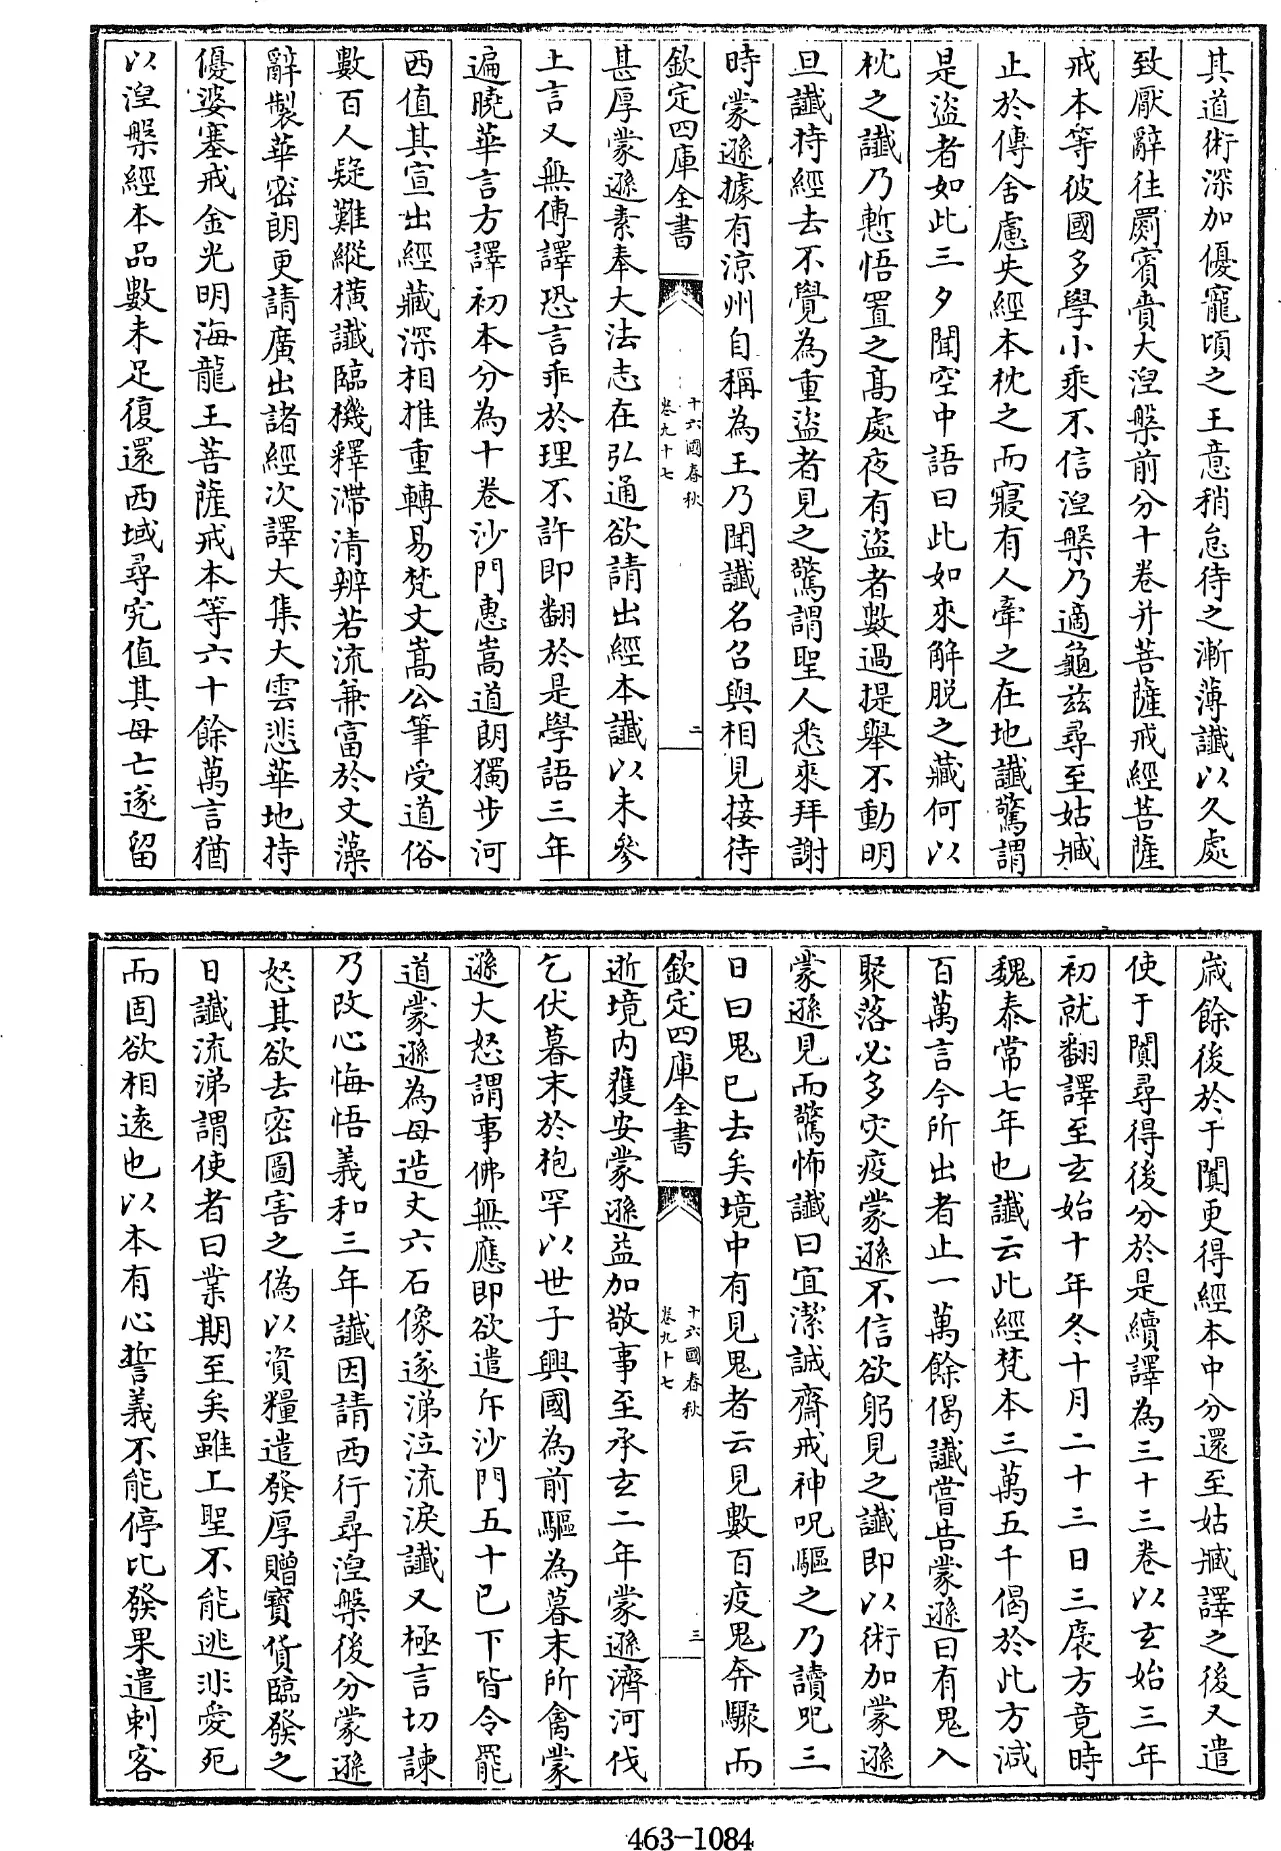 其道術深加優寵頃之王意稍怠待之漸薄讖以久處
致厭辭往罽賓賫大湼槃前分十卷并菩薩戒經菩薩
戒本等彼國多學小乘不信湼槃乃適龜兹尋至姑臧
止於傳舍慮失經本枕之而寢有人牽之在地讖驚謂
是盜者如此三夕聞空中語曰此如來解脱之藏何以
枕之讖乃慙悟置之髙處夜有盜者數過提舉不動明
旦讖持經去不覺為重盜者見之驚謂聖人悉來拜謝
時蒙遜據有涼州自稱為王乃聞讖名召與相見接待
欽定四庫全書
十六國春秋
卷九十七
二
甚厚蒙遜素奉大法志在弘通欲請出經本讖以未參
土言又無傳譯恐言乖於理不許即翻於是學語三年
遍曉華言方譯初本分為十卷沙門惠嵩道朗獨步河
西值其宣出經藏深相推重轉易梵文嵩公筆受道俗
數百人疑難縱橫讖臨機釋滯清辨若流兼富於文藻
辭製華密朗更請廣出諸經次譯大集大雲悲華地持
優婆塞戒金光明海龍王菩薩戒本等六十餘萬言猶
以湼槃經本品數未足復還西域尋究值其母亡遂留
嵗餘後於于闐更得經本中分還至姑臧譯之後又遣
使于闐尋得後分於是續譯為三十三卷以玄始三年
初就翻譯至玄始十年冬十月二十三日三袠方竟時
魏泰常七年也讖云此經梵本三萬五千偈於此方減
百萬言今所出者止一萬餘偈讖嘗告蒙遜曰有鬼入
聚落必多灾疫蒙遜不信欲躬見之讖即以術加蒙遜
蒙遜見而驚怖讖曰宜潔誠齋戒神呪驅之乃讀呪三
日曰鬼已去矣境中有見鬼者云見數百疫鬼奔驟而
欽定四庫全書
十六國春秋
卷九十七
三
逝境内獲安蒙遜益加敬事至承玄二年蒙遜濟河伐
乞伏暮末於枹罕以世子興國為前驅為暮末所禽蒙
遜大怒謂事佛無應即欲遣斥沙門五十已下皆令罷
道蒙遜為母造丈六石像遂涕泣流淚讖又極言切諫
乃改心悔悟義和三年讖因請西行尋湼槃後分蒙遜
怒其欲去密圖害之偽以資糧遣發厚贈寶貨臨發之
日讖流涕謂使者曰業期至矣雖工聖不能逃非愛死
而固欲相逺也以本有心誓義不能停比發果遣刺客
463-1084